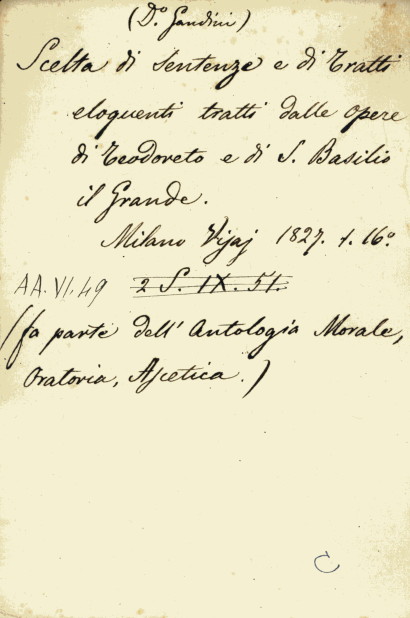 (D.º Gandini)
Scelta di Sentenze e di Tratti
eloquenti tratti dalle opere
di Teodoreto e di S. Basilio
il Grande.
Milano Vijaj 1827. 1. 16.º
AA.VI.49 2 S. IX. 51.
(fa parte dell' Antologia Morale,
Oratoria, Ascetica.)
C